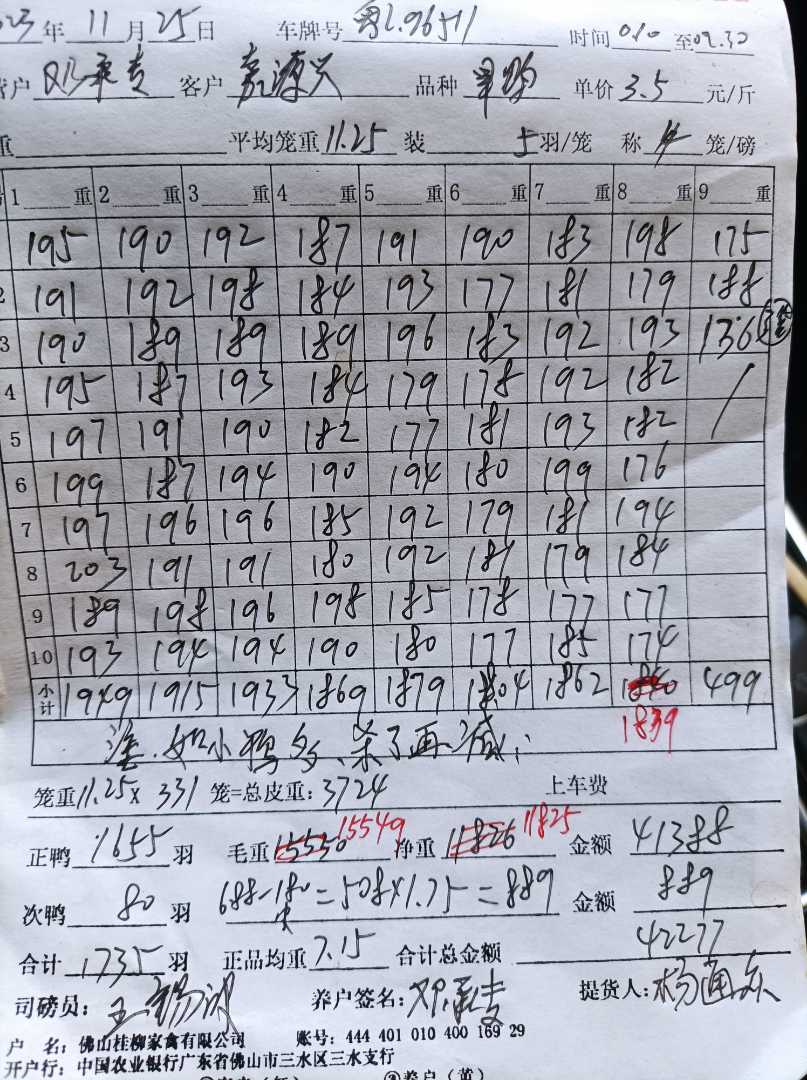 23 年 11 月 25 日 车牌号 粤L.96511 时间 0.10 至 02.30
户 邓 客户 嘉源兴 品种 单价 3.5 元/斤
重 平均笼重 11.25 装 5 羽/笼 称 4 笼/磅
1 重 2 重 3 重 4 重 5 重 6 重 7 重 8 重 9 重
195 190 192 187 191 190 183 198 175
2 191 192 198 184 193 177 181 179 188
3 190 189 189 189 196 183 192 193 136
4 195 187 193 184 179 178 192 182
5 197 191 190 182 177 181 193 182
6 199 187 194 190 194 180 199 176
7 197 196 196 185 192 179 181 194
8 203 191 191 180 192 181 179 184
9 189 198 196 198 185 178 177 177
10 193 194 194 190 180 177 185 174
小计 1949 1915 1933 1869 1879 1804 1862 1840 499
1839
如小鸭多、杀了再减
笼重 11.25 x 331 笼=总皮重: 3724 上车费
正鸭 1655 羽 毛重 15550 15549 净重 11826 11825 金额 41388
次鸭 80 羽 688-180=508x1.75=889 金额 889
合计 1735 羽 正品均重 7.15 合计总金额 42277
司磅员: 王锡 养户签名: 邓 提货人: 杨通
户 名: 佛山桂柳家禽有限公司 账号: 444 401 010 400 169 29
开户行: 中国农业银行广东省佛山市三水区三水支行
③养户(黄)